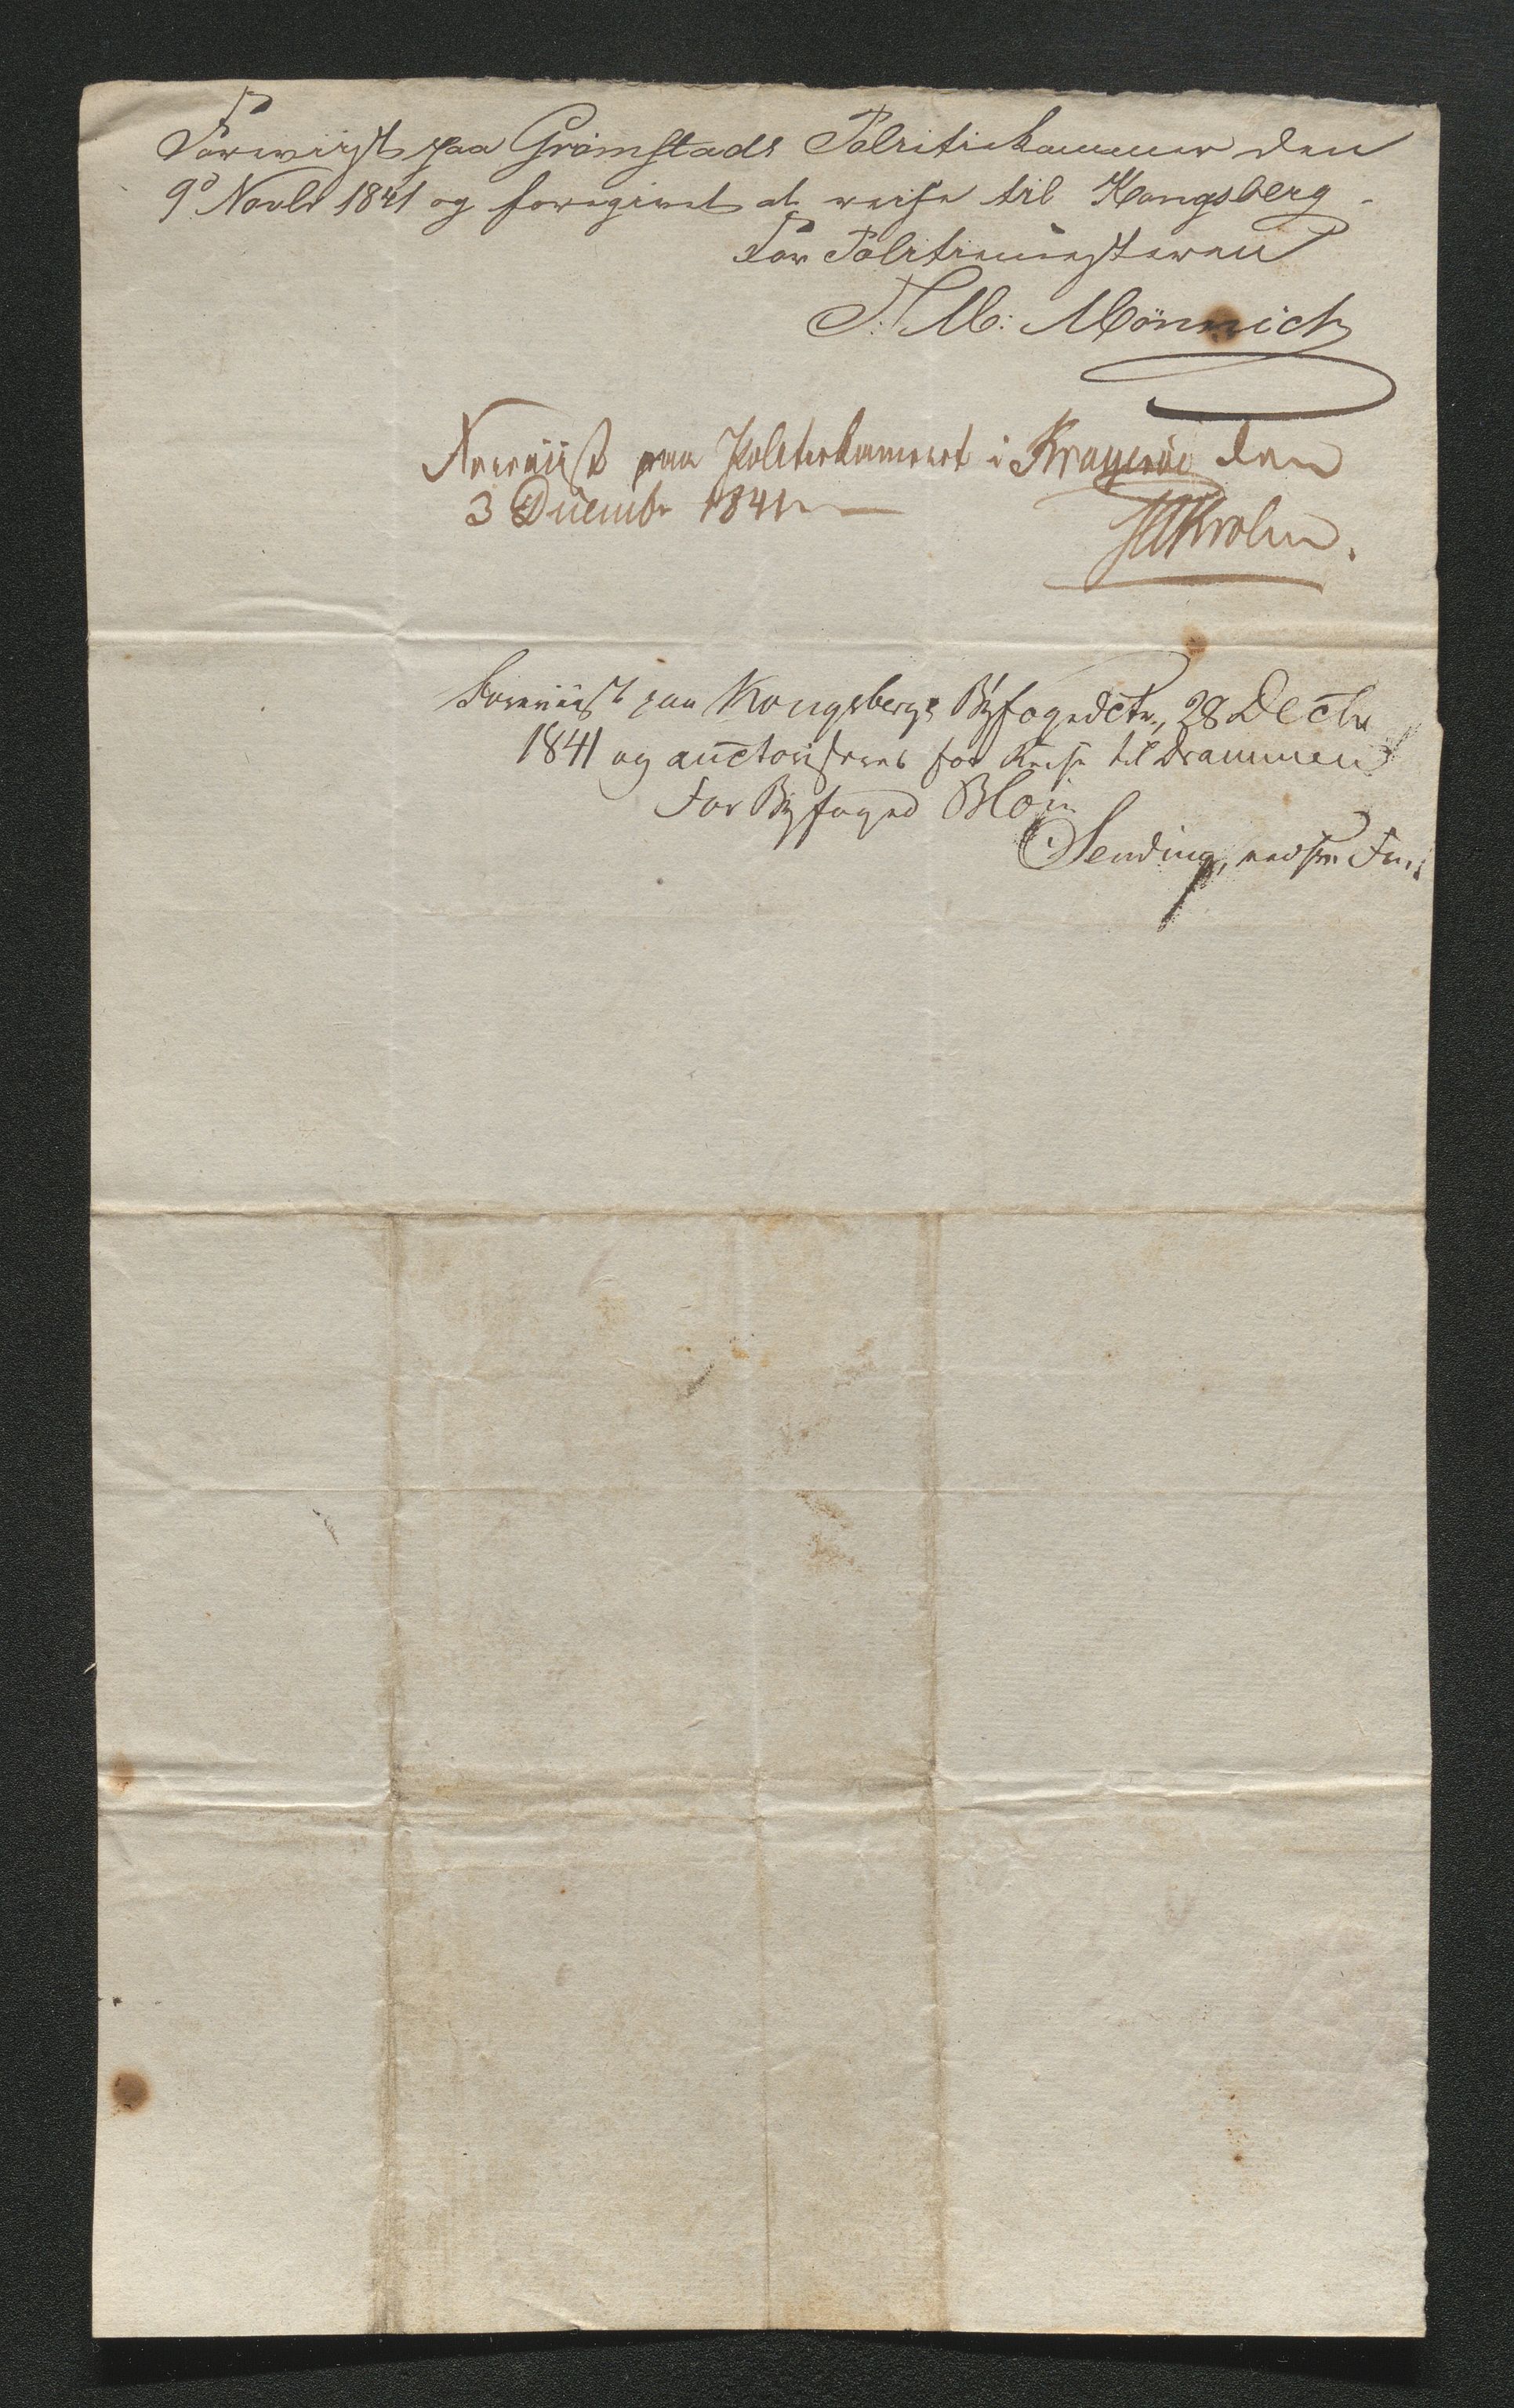 Foreviist paa Grimstads Politiekammer den
9de Novbr 1841 og foregivet at reise til Kongsberg.
For Politiemesteren
T: M: Mönnich
Foreviist paa Politiekameret i Krageröe den
3 Decembr 1841
Foreviist paa Kongsbergs Byfogedctr., 28 Decbr
1841 og auctoriseres for Reise til Drammen
For Byfoged Blom
Sending,